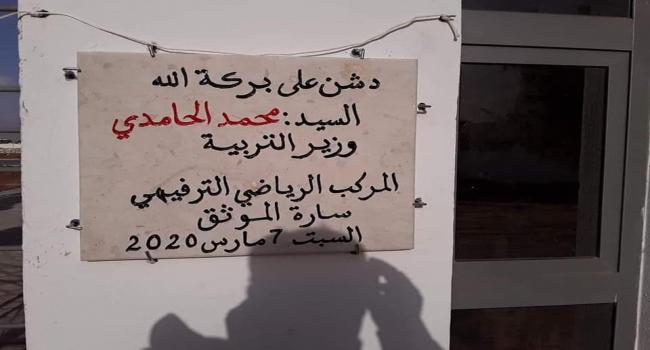 دشن على بركة الله
السيد: محمد الحامدي
وزير التربية
المركب الرياضي الترفيهي
سارة الموثق
السبت 7 مارس 2020